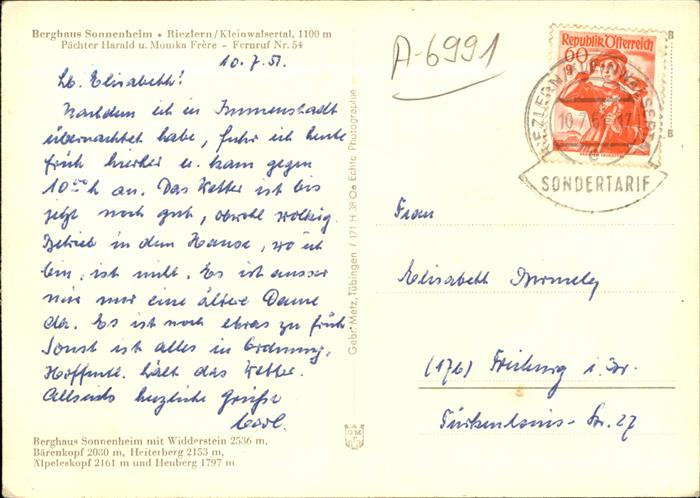 Berghaus Sonnenheim • Riezlern/Kleinwalsertal, 1100 m
Pächter Harald u. Monika Frère - Fernruf Nr. 54
10.7.51.
Lb. Elisabeth!
Nachdem ich in Immenstadt
übernachtet habe, fuhr ich heute
früh hierher u. kam gegen
10⁰⁰h an. Das Wetter ist bis
jetzt noch gut, obwohl wolkig.
Betrieb in dem Hause, wo ich
bin, ist nicht. Es ist ausser
mir nur eine ältere Dame
da. Es ist noch etwas zu früh
Sonst ist alles in Ordnung.
Hoffentl. hält das Wetter.
Allseits herzliche Grüße
Carl.
Berghaus Sonnenheim mit Widderstein 2536 m,
Bärenkopf 2080 m, Heiterberg 2153 m,
Älpeleskopf 2161 m und Heuberg 1797 m
Gebr. Metz, Tübingen / 171 H 38 Oe Echte Photographie
A-6991
Republik Österreich
60 g
RIEZLERN KLEINWALSERTAL
10.7.5
SONDERTARIF
B
B
Frau
Elisabeth
(17b) Freiburg i. Br.
Türkenlouis-Str. 27